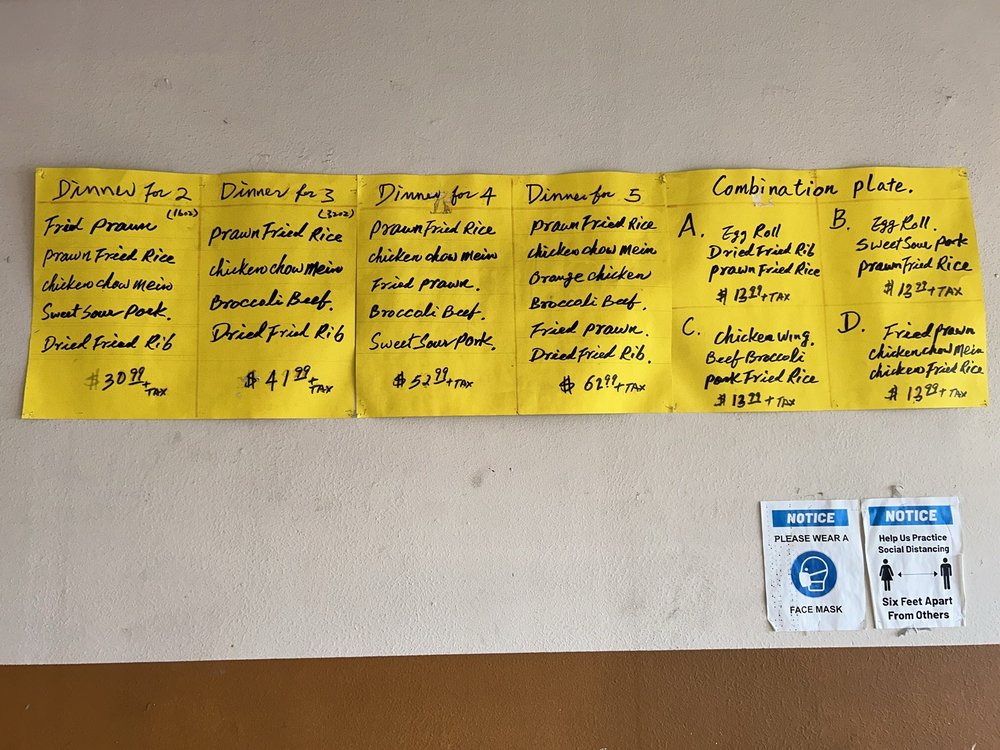 Dinner for 2
(16oz)
Fried Prawn
Prawn Fried Rice
chicken chow mein
Sweet Sour Pork.
Dried Fried Rib
$30.99 + TAX
Dinner for 3
(32oz)
Prawn Fried Rice
chicken chow mein
Broccoli Beef.
Dried Fried Rib
$41.99 + TAX
Dinner for 4
Prawn Fried Rice
chicken chow mein
Fried Prawn.
Broccoli Beef.
Sweet Sour Pork.
$52.99 + TAX
Dinner for 5
Prawn Fried Rice
chicken chow mein
Orange chicken
Broccoli Beef.
Fried Prawn.
Dried Fried Rib.
$62.99 + TAX
Combination plate.
A. Egg Roll
Dried Fried Rib
Prawn Fried Rice
$13.99 + TAX
B. Egg Roll.
Sweet Sour Pork
Prawn Fried Rice
$13.99 + TAX
C. Chicken wing.
Beef Broccoli
Pork Fried Rice
$13.99 + TAX
D. Fried Prawn
chicken chow mein
chicken Fried Rice
$13.99 + TAX
NOTICE
PLEASE WEAR A
FACE MASK
NOTICE
Help Us Practice
Social Distancing
Six Feet Apart
From Others